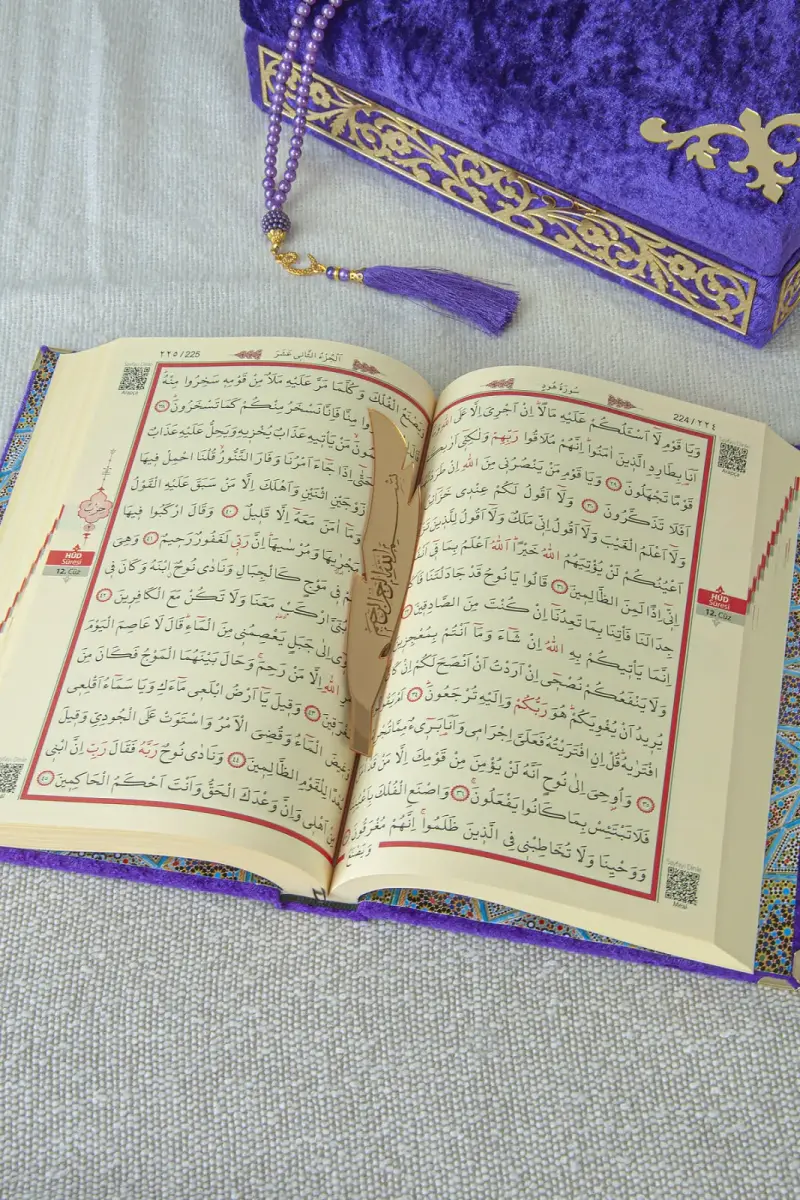 سُورَةُ هُودٍ
224/٢٢٤
وَيَا قَوْمِ لَٓا اَسْـَٔلُكُمْ عَلَيْهِ مَالًاۜ اِنْ اَجْرِيَ اِلَّا عَلَى اللّٰهِ
اَنَا۬ بِطَارِدِ الَّذِينَ اٰمَنُواۜ اِنَّهُمْ مُلَاقُوا رَبِّهِمْ وَلٰكِنِّٓي
قَوْمًا تَجْهَلُونَ ﴿٢٩﴾ وَيَا قَوْمِ مَنْ يَنْصُرُنِي مِنَ اللّٰهِ اِنْ
اَفَلَا تَذَكَّرُونَ ﴿٣٠﴾ وَلَٓا اَقُولُ لَكُمْ عِنْدِي
وَلَٓا اَعْلَمُ الْغَيْبَ وَلَٓا اَقُولُ اِنِّي مَلَكٌ وَلَٓا اَقُولُ لِلَّذِينَ
اَعْيُنُكُمْ لَنْ يُؤْتِيَهُمُ اللّٰهُ خَيْرًاۜ اَللّٰهُ اَعْلَمُ بِمَا فِٓي
اِنِّٓي اِذًا لَمِنَ الظَّالِمِينَ ﴿٣١﴾ قَالُوا يَا نُوحُ قَدْ جَادَلْتَنَا
جِدَالَنَا فَأْتِنَا بِمَا تَعِدُنَٓا اِنْ كُنْتَ مِنَ الصَّادِقِينَ
اِنَّمَا يَأْتِيكُمْ بِهِ اللّٰهُ اِنْ شَٓاءَ وَمَٓا اَنْتُمْ بِمُعْجِزِينَ
وَلَا يَنْفَعُكُمْ نُصْحِٓي اِنْ اَرَدْتُ اَنْ اَنْصَحَ لَكُمْ اِنْ
يُرِيدُ اَنْ يُغْوِيَكُمْۜ هُوَ رَبُّكُمْ وَاِلَيْهِ تُرْجَعُونَۜ ﴿٣٤﴾ اَمْ
افْتَرٰيهُۜ قُلْ اِنِ افْتَرَيْتُهُ فَعَلَيَّ اِجْرَامِي وَاَنَا۬ بَرِٓيءٌ مِمَّا
﴿٣٥﴾ وَاُو۫حِيَ اِلٰى نُوحٍ اَنَّهُ لَنْ يُؤْمِنَ مِنْ قَوْمِكَ اِلَّا مَنْ قَدْ
فَلَا تَبْتَئِسْ بِمَا كَانُوا يَفْعَلُونَۚ ﴿٣٦﴾ وَاصْنَعِ الْفُلْكَ
وَوَحْيِنَا وَلَا تُخَاطِبْنِي فِي الَّذِينَ ظَلَمُواۚ اِنَّهُمْ مُغْرَقُونَ
وَيَصْنَعُ
HÛD
Sûresi
12. Cüz
Sayfayı Dinle
Arapça
Sayfayı Dinle
Meal
اَلْجُزْءُ الثَّانِي عَشَرَ
٢٢٥/225
وَيَصْنَعُ الْفُلْكَ وَكُلَّمَا مَرَّ عَلَيْهِ مَلَاٌ مِنْ قَوْمِهِ سَخِرُوا مِنْهُۜ
مِنَّا فَاِنَّا نَسْخَرُ مِنْكُمْ كَمَا تَسْخَرُونَۜ ﴿٣٨﴾
مَنْ يَأْتِيهِ عَذَابٌ يُخْزِيهِ وَيَحِلُّ عَلَيْهِ عَذَابٌ
حَتّٰٓى اِذَا جَٓاءَ اَمْرُنَا وَفَارَ التَّنُّورُۙ قُلْنَا احْمِلْ فِيهَا
زَوْجَيْنِ اثْنَيْنِ وَاَهْلَكَ اِلَّا مَنْ سَبَقَ عَلَيْهِ الْقَوْلُ
وَمَٓا اٰمَنَ مَعَهُٓ اِلَّا قَلِيلٌ ﴿٤٠﴾ وَقَالَ ارْكَبُوا فِيهَا
مَجْرٰۭۙيهَا وَمُرْسٰيهَاۜ اِنَّ رَبِّي لَغَفُورٌ رَحِيمٌ ﴿٤١﴾ وَهِيَ
فِي مَوْجٍ كَالْجِبَالِ وَنَادٰى نُوحٌۨ ابْنَهُ وَكَانَ فِي
ارْكَبْ مَعَنَا وَلَا تَكُنْ مَعَ الْكَافِرِينَ ﴿٤٢﴾
اِلٰى جَبَلٍ يَعْصِمُنِي مِنَ الْمَٓاءِۜ قَالَ لَا عَاصِمَ الْيَوْمَ
اللّٰهِ اِلَّا مَنْ رَحِمَۚ وَحَالَ بَيْنَهُمَا الْمَوْجُ فَكَانَ مِنَ
الْمُغْرَقِينَ ﴿٤٣﴾ وَقِيلَ يَٓا اَرْضُ ابْلَعِي مَٓاءَكِ وَيَا سَمَٓاءُ اَقْلِعِي
وَغِيضَ الْمَٓاءُ وَقُضِيَ الْاَمْرُ وَاسْتَوَتْ عَلَى الْجُودِيِّ وَقِيلَ
بُعْدًا لِلْقَوْمِ الظَّالِمِينَ ﴿٤٤﴾ وَنَادٰى نُوحٌ رَبَّهُ فَقَالَ رَبِّ اِنَّ ابْنِي
مِنْ اَهْلِي وَاِنَّ وَعْدَكَ الْحَقُّ وَاَنْتَ اَحْكَمُ الْحَاكِمِينَ ﴿٤٥﴾
حزب
HÛD
Sûresi
12. Cüz
Sayfayı Dinle
Arapça
بسم الله الرحمن الرحيم